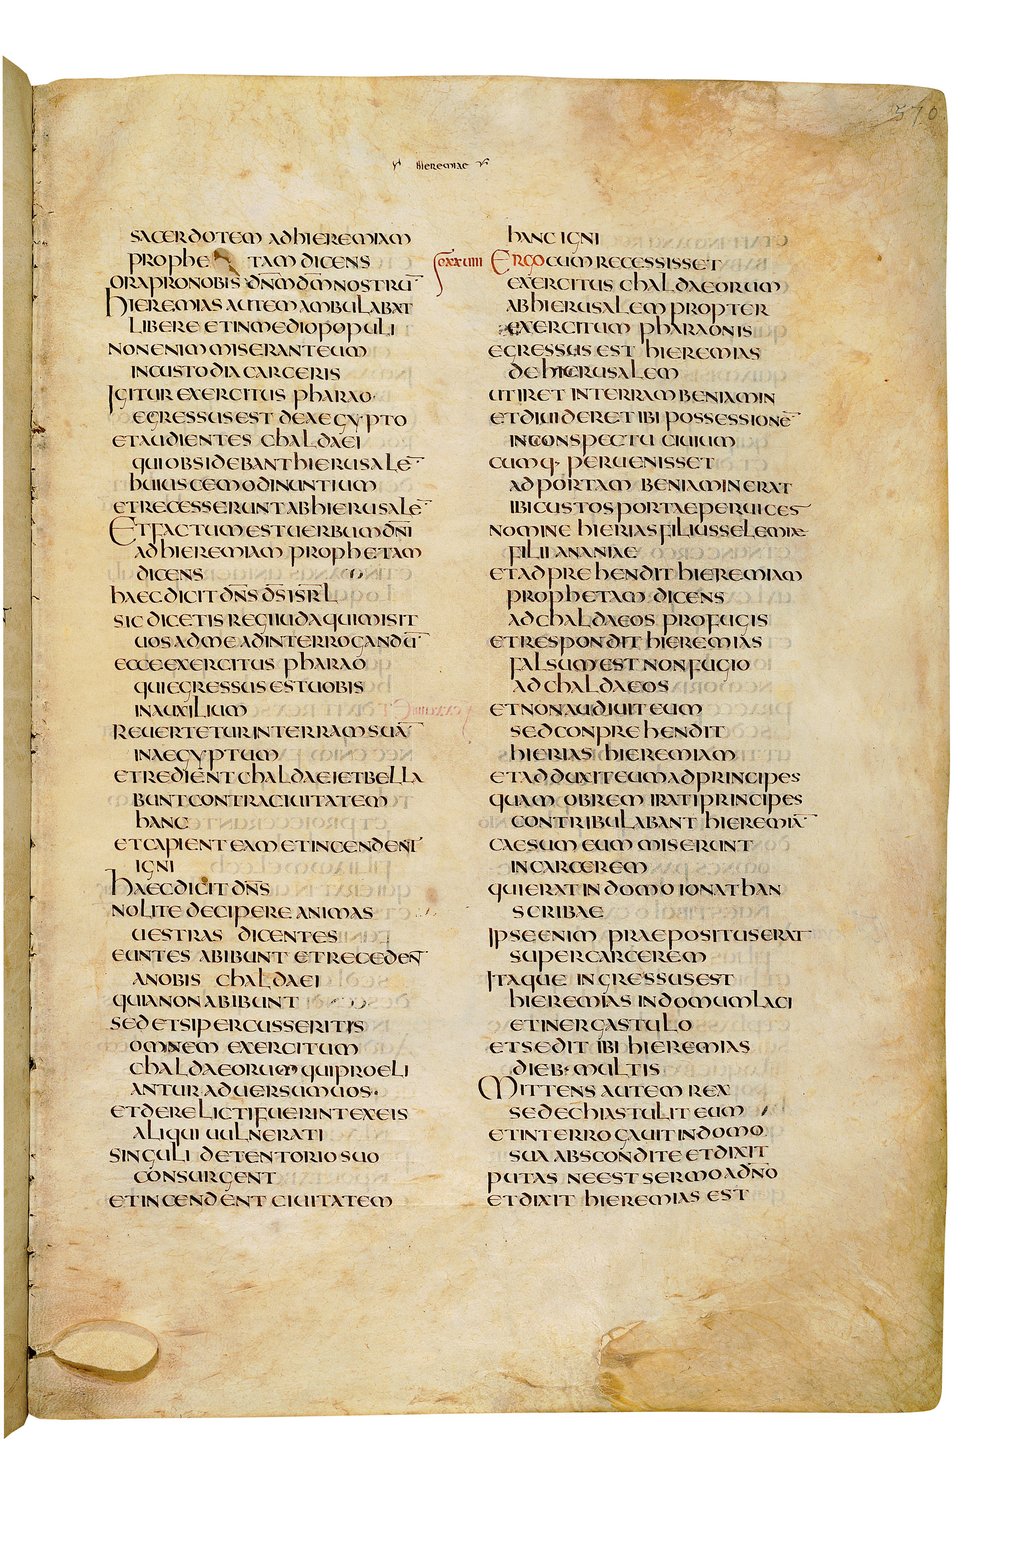 570
hieremiae
sacerdotem ad hieremiam
prophe tam dicens
ora pro nobis dn̄m dm̄ nostrū
hieremias autem ambulabat
libere et in medio populi
non enim miserant eum
in custodia carceris
igitur exercitus pharao
egressus est de aegypto
et audientes chaldaei
qui obsidebant hierusalē
huiuscemodi nuntium
et recesserunt ab hierusalē
et factum est uerbum dn̄i
ad hieremiam prophetam
dicens
haec dicit dn̄s ds̄ isr̄l
sic dicetis regi iuda qui misit
uos ad me ad interrogandū
ecce exercitus pharao
qui egressus est uobis
in auxilium
reuertetur in terram suā
in aegyptum
et redient chaldaei et bella
bunt contra ciuitatem
hanc
et capient eam et incendent
igni
haec dicit dn̄s
nolite decipere animas
uestras dicentes
euntes abibunt et recedent
a nobis chaldaei
quia non abibunt
sed et si percusseritis
omnem exercitum
chaldaeorum qui proeli
antur aduersum uos
et derelicti fuerint ex eis
aliqui uulnerati
singuli de tentorio suo
consurgent
et incendent ciuitatem
hanc igni
xxuiiii ergo cum recessisset
exercitus chaldaeorum
ab hierusalem propter
exercitum pharaonis
egressus est hieremias
de hierusalem
ut iret in terram beniamin
et diuideret ibi possessionē
in conspectu ciuium
cumq· peruenisset
ad portam beniamin erat
ibi custos portae per uices
nomine hierias filius selemiae
filii ananiae
et adprehendit hieremiam
prophetam dicens
ad chaldaeos profugis
et respondit hieremias
falsum est non fugio
ad chaldaeos
et non audiuit eum
sed conprehendit
hierias hieremiam
et adduxit eum ad principes
quam obrem irati principes
contribulabant hieremiā
caesum eum miserunt
in carcerem
qui erat in domo ionathan
scribae
ipse enim praepositus erat
super carcerem
itaque ingressus est
hieremias in domum laci
et in ergastulo
et sedit ibi hieremias
dieb· multis
mittens autem rex
sedechias tulit eum
et interrogauit in domo
sua abscondite et dixit
putasne est sermo a dn̄o
et dixit hieremias est